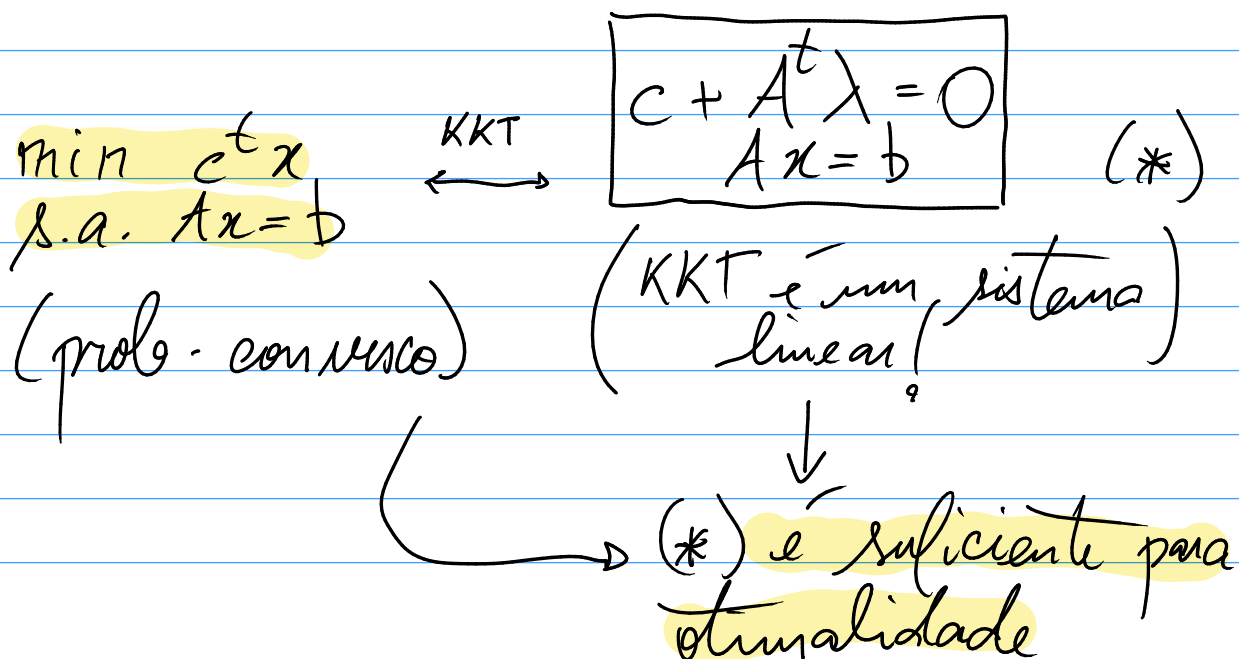 min cᵗx
s.a. Ax=b
(prob. convexo)
KKT
c + Aᵗλ = 0
Ax = b
(*)
(KKT é um sistema
linear!)
(*) é suficiente para
otimalidade